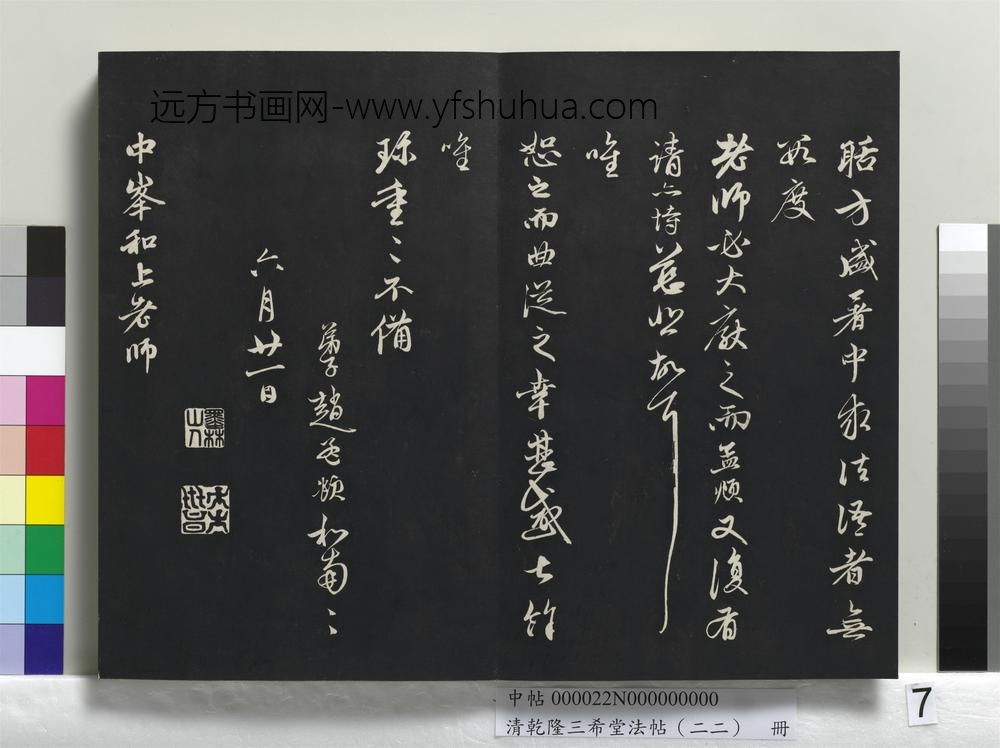 远方书画网-www.yfshuhua.com
聒方盛暑中求法語者無
數度
老師必大厭之而孟頫又復有
請亦恃慈悲故耳
唯
恕之而曲從之幸甚感餘
唯
珎重〻不備
弟子趙孟頫和南〻
六月廿一日
中峯和上老師
墨林山人
中帖 000022N000000000
清乾隆三希堂法帖（二二） 冊
7